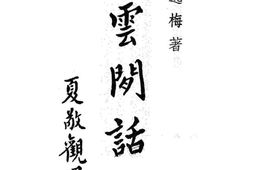 梅著
雲閒話
夏敬觀